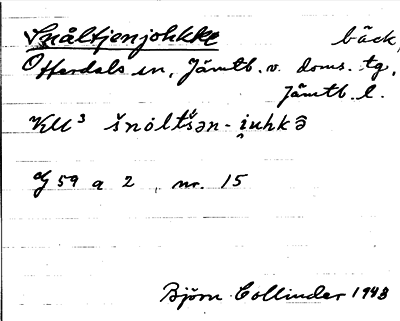 Snåltjenjohkke bäck,
Offerdals sn, Jämtl. v. doms. tg,
Jämtl. l.
KU³ šnòltšən-i̯uhkə̂
Gf 59 a 2, nr. 15
Björn Collinder 1943